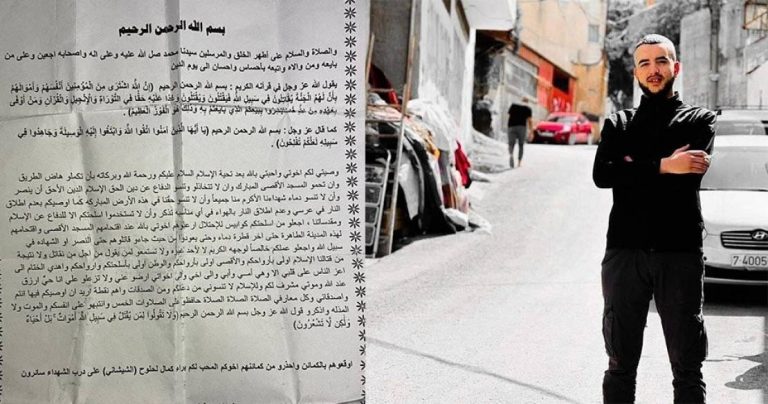 بسم الله الرحمن الرحيم
والصلاة والسلام على أطهر الخلق والمرسلين سيدنا محمد صل الله عليه وعلى اله واصحابه اجعين وعلى من
بايعه ومن والاه واتبعه بأحساس واحسان الى يوم الدين
يقول الله عز وجل في قرآنه الكريم : بسم الله الرحمن الرحيم (إِنَّ اللَّهَ اشْتَرَىٰ مِنَ الْمُؤْمِنِينَ أَنْفُسَهُمْ وَأَمْوَالَهُمْ
بِأَنَّ لَهُمُ الْجَنَّةَ يُقَاتِلُونَ فِي سَبِيلِ اللَّهِ فَيَقْتُلُونَ وَيُقْتَلُونَ وَعْدًا عَلَيْهِ حَقًّا فِي التَّوْرَاةِ وَالْإِنْجِيلِ وَالْقُرْآنِ وَمَنْ أَوْفَى
بِعَهْدِهِ مِنَ اللَّهِ فَاسْتَبْشِرُوا بِبَيْعِكُمُ الَّذِي بَايَعْتُمْ بِهِ وَذَٰلِكَ هُوَ الْفَوْزُ الْعَظِيمُ) .
كما قال عز وجل : بسم الله الرحمن الرحيم (يَا أَيُّهَا الَّذِينَ آمَنُوا اتَّقُوا اللَّهَ وَابْتَغُوا إِلَيْهِ الْوَسِيلَةَ وَجَاهِدُوا فِي
سَبِيلِهِ لَعَلَّكُمْ تُفْلِحُونَ) .
وصيتي لكم اخوتي واحبتي بالله بعد تحية الإسلام السلام عليكم ورحمة الله وبركاته بأن تكملو هاض الطريق
وان تحمو المسجد الأقصى المبارك وان لا تتخاذلو وتنسو الدفاع عن دين الحق الإسلام الدين الأحق أن ينصر
وأن لا تنسو دماء شهداءنا الأكرم منا جميعاً وأن لا تنسو حقنا في هذه الأرض المباركه كما اوصيكم بعدم اطلاق
النار في عرسي وعدم اطلاق النار بالهواء في أي مناسبه تذكر وأن لا تستخدموا اسلحتكم الا للدفاع عن الإسلام
ومقدساتنا ، اجعلو من اسلحتكم كوابيس للإحتلال ارعبوهم اخوتي بالله عند اقتحامهم المسجد الأقصى واقتحامهم
لهذه المدينة الطاهرة حتى اخر قطرة دماء وحتى يعودوا من حيث جاءو قاتلو هم حتى النصر او الشهاده في
سبيل الله واجعلو عملكم خالصاً لوجهه الكريم لا لأحد غيره ولا تستمعو لمن يقول من أجل من نقاتل ولا نتيجة
من قتالنا الإسلام أولى بأرواحكم والأقصى أولى بأرواحكم والوطن أولى بأسلحتكم وأرواحكم واهدي الختام الى
اعز الناس على قلبي الا وهي أمي وأبي والى اخي والى اخوتي ارضو عني ولا تزعلو علي انا حيّ ارزق
عند الله وموتي مشرف لكم وللإسلام لا تنسوني من دعائكم ومن الصدقات واهم نقطة أريد ان اوصيكم فيها انتم
واصدقائي وكل معارفي الصلاة الصلاة الصلاة حافظو على الصلاوات الخمس وانتبهو على انفسكم والموت ولا
المذله واذكرو قول الله عز وجل بسم الله الرحمن الرحيم (وَلَا تَقُولُوا لِمَن يُقْتَلُ فِي سَبِيلِ اللَّهِ أَمْوَاتٌ ۚ بَلْ أَحْيَاءٌ
وَلَٰكِن لَّا تَشْعُرُونَ)
اوقعوهم بالكمائن واحذرو من كمائنهم اخوكم المحب لكم براء كمال لحلوح (الشيشاني) على درب الشهداء سائرون
7 4005